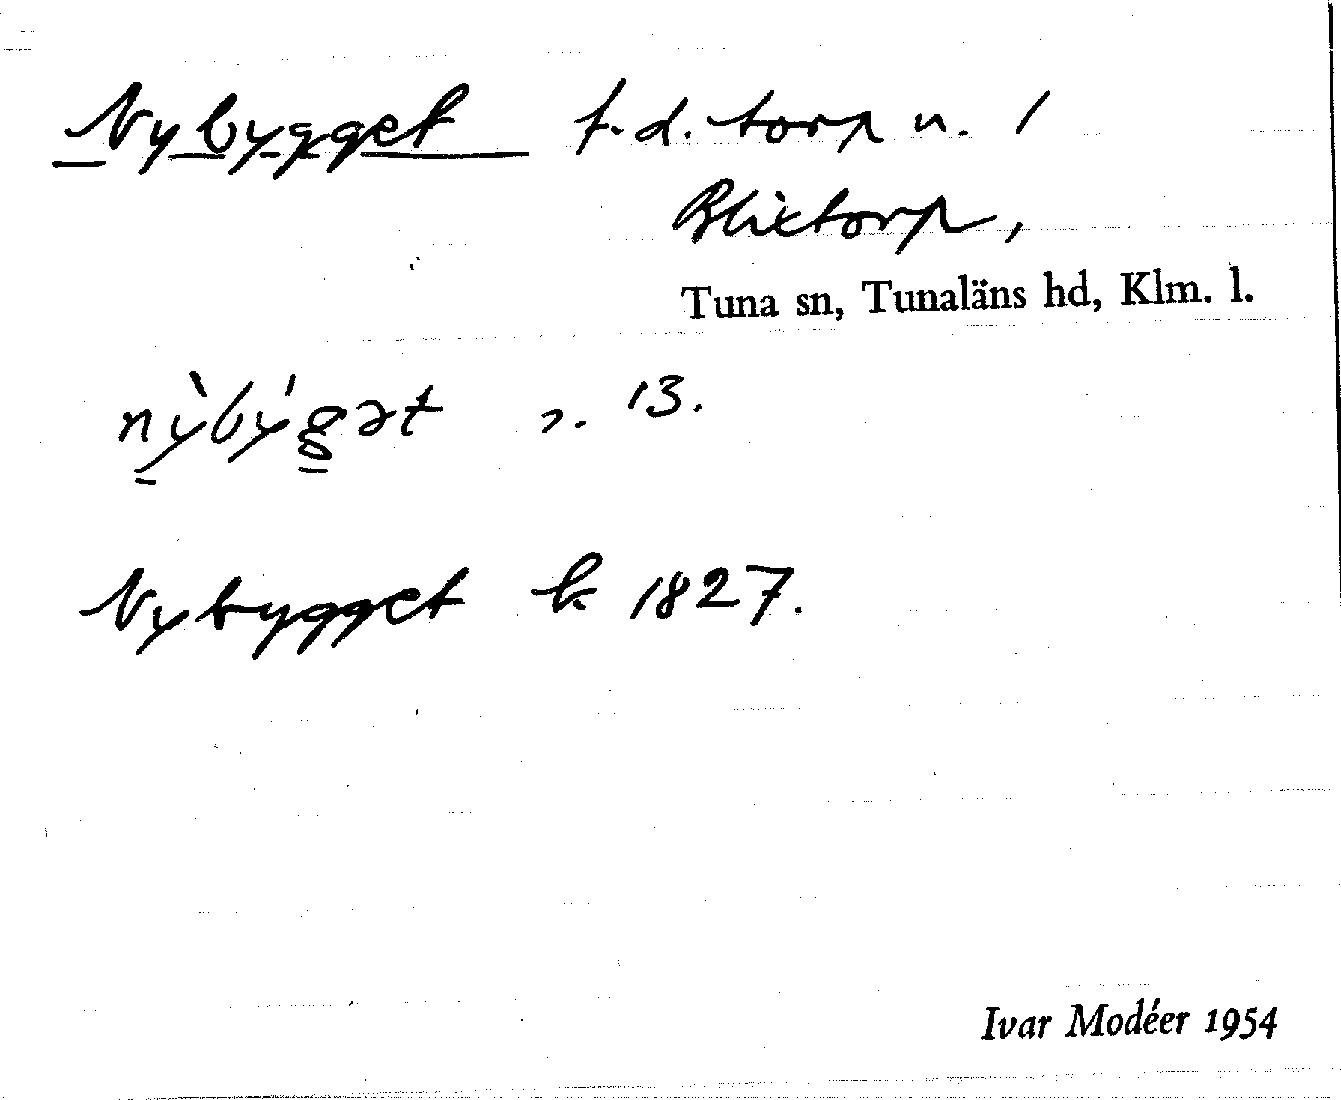 Nybygget f.d. torp u. 1
Blixtorp,
Tuna sn, Tunaläns hd, Klm. l.
nỳ̠bý́g̠ət 13.
Nybygget k 1827.
Ivar Modéer 1954